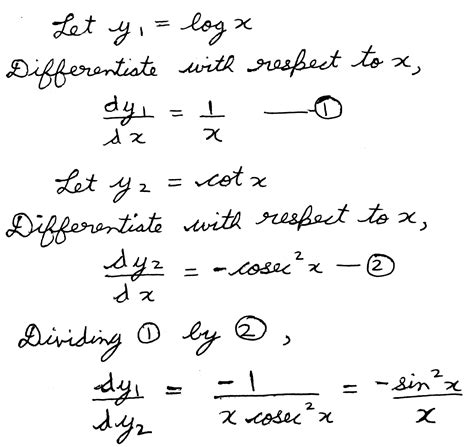 Let y₁ = log x
Differentiate with respect to x,
dy₁/dx = 1/x —①
Let y₂ = cot x
Differentiate with respect to x,
dy₂/dx = -cosec²x —②
Dividing ① by ②,
dy₁/dy₂ = -1/(x cosec²x) = -sin²x/x